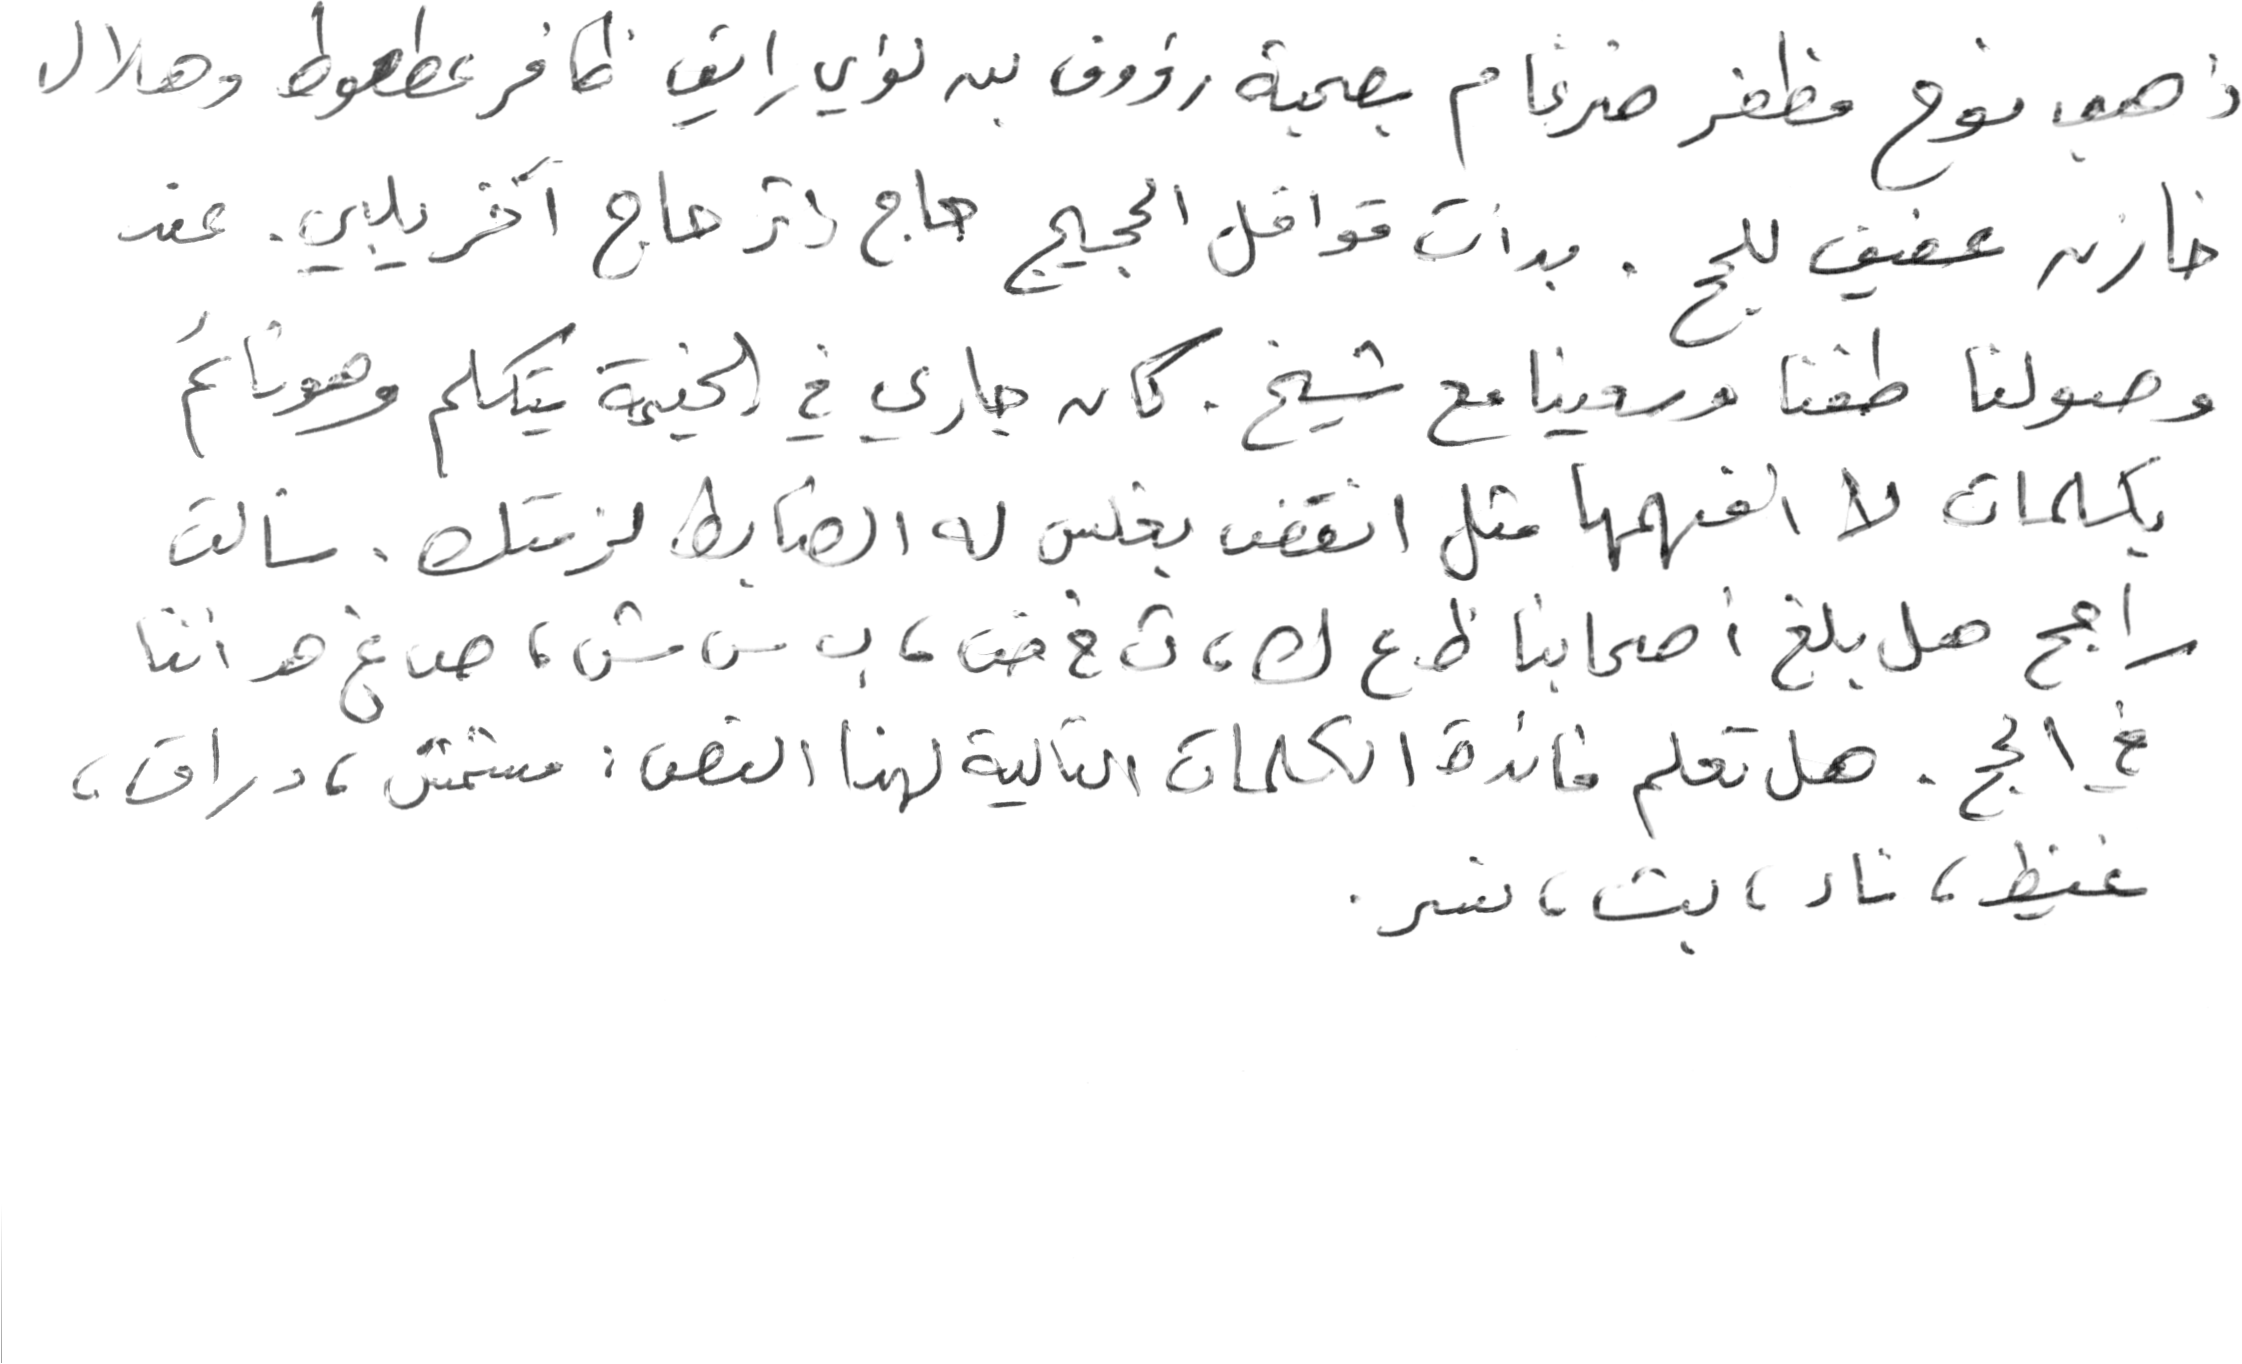 ذهب نوح مظفر ضرغام بصحبة رؤوف بن لؤي رايق ظافر عطعوط وهلال
خازن عفيف للحج . بدأت قوافل الحجيج حاج إثر حاج آخر يلبي . عند
وصولنا طفنا وسعينا مع شيخ . كان جاري في الخيمة يتكلم وهو نائمُ
بكلمات لا أفهمها مثل انقض بغلس له الضابط لزمتك . سألت
راجح هل بلغ أصحابنا ظ ع ك ، ث غ ض ، ب س ش ، ص غ هـ أننا
في الحج . هل تعلم فائدة الكلمات التالية لهذا النص : مشمش ، دراق ،
غيظ ، ناد ، بث ، نسر .